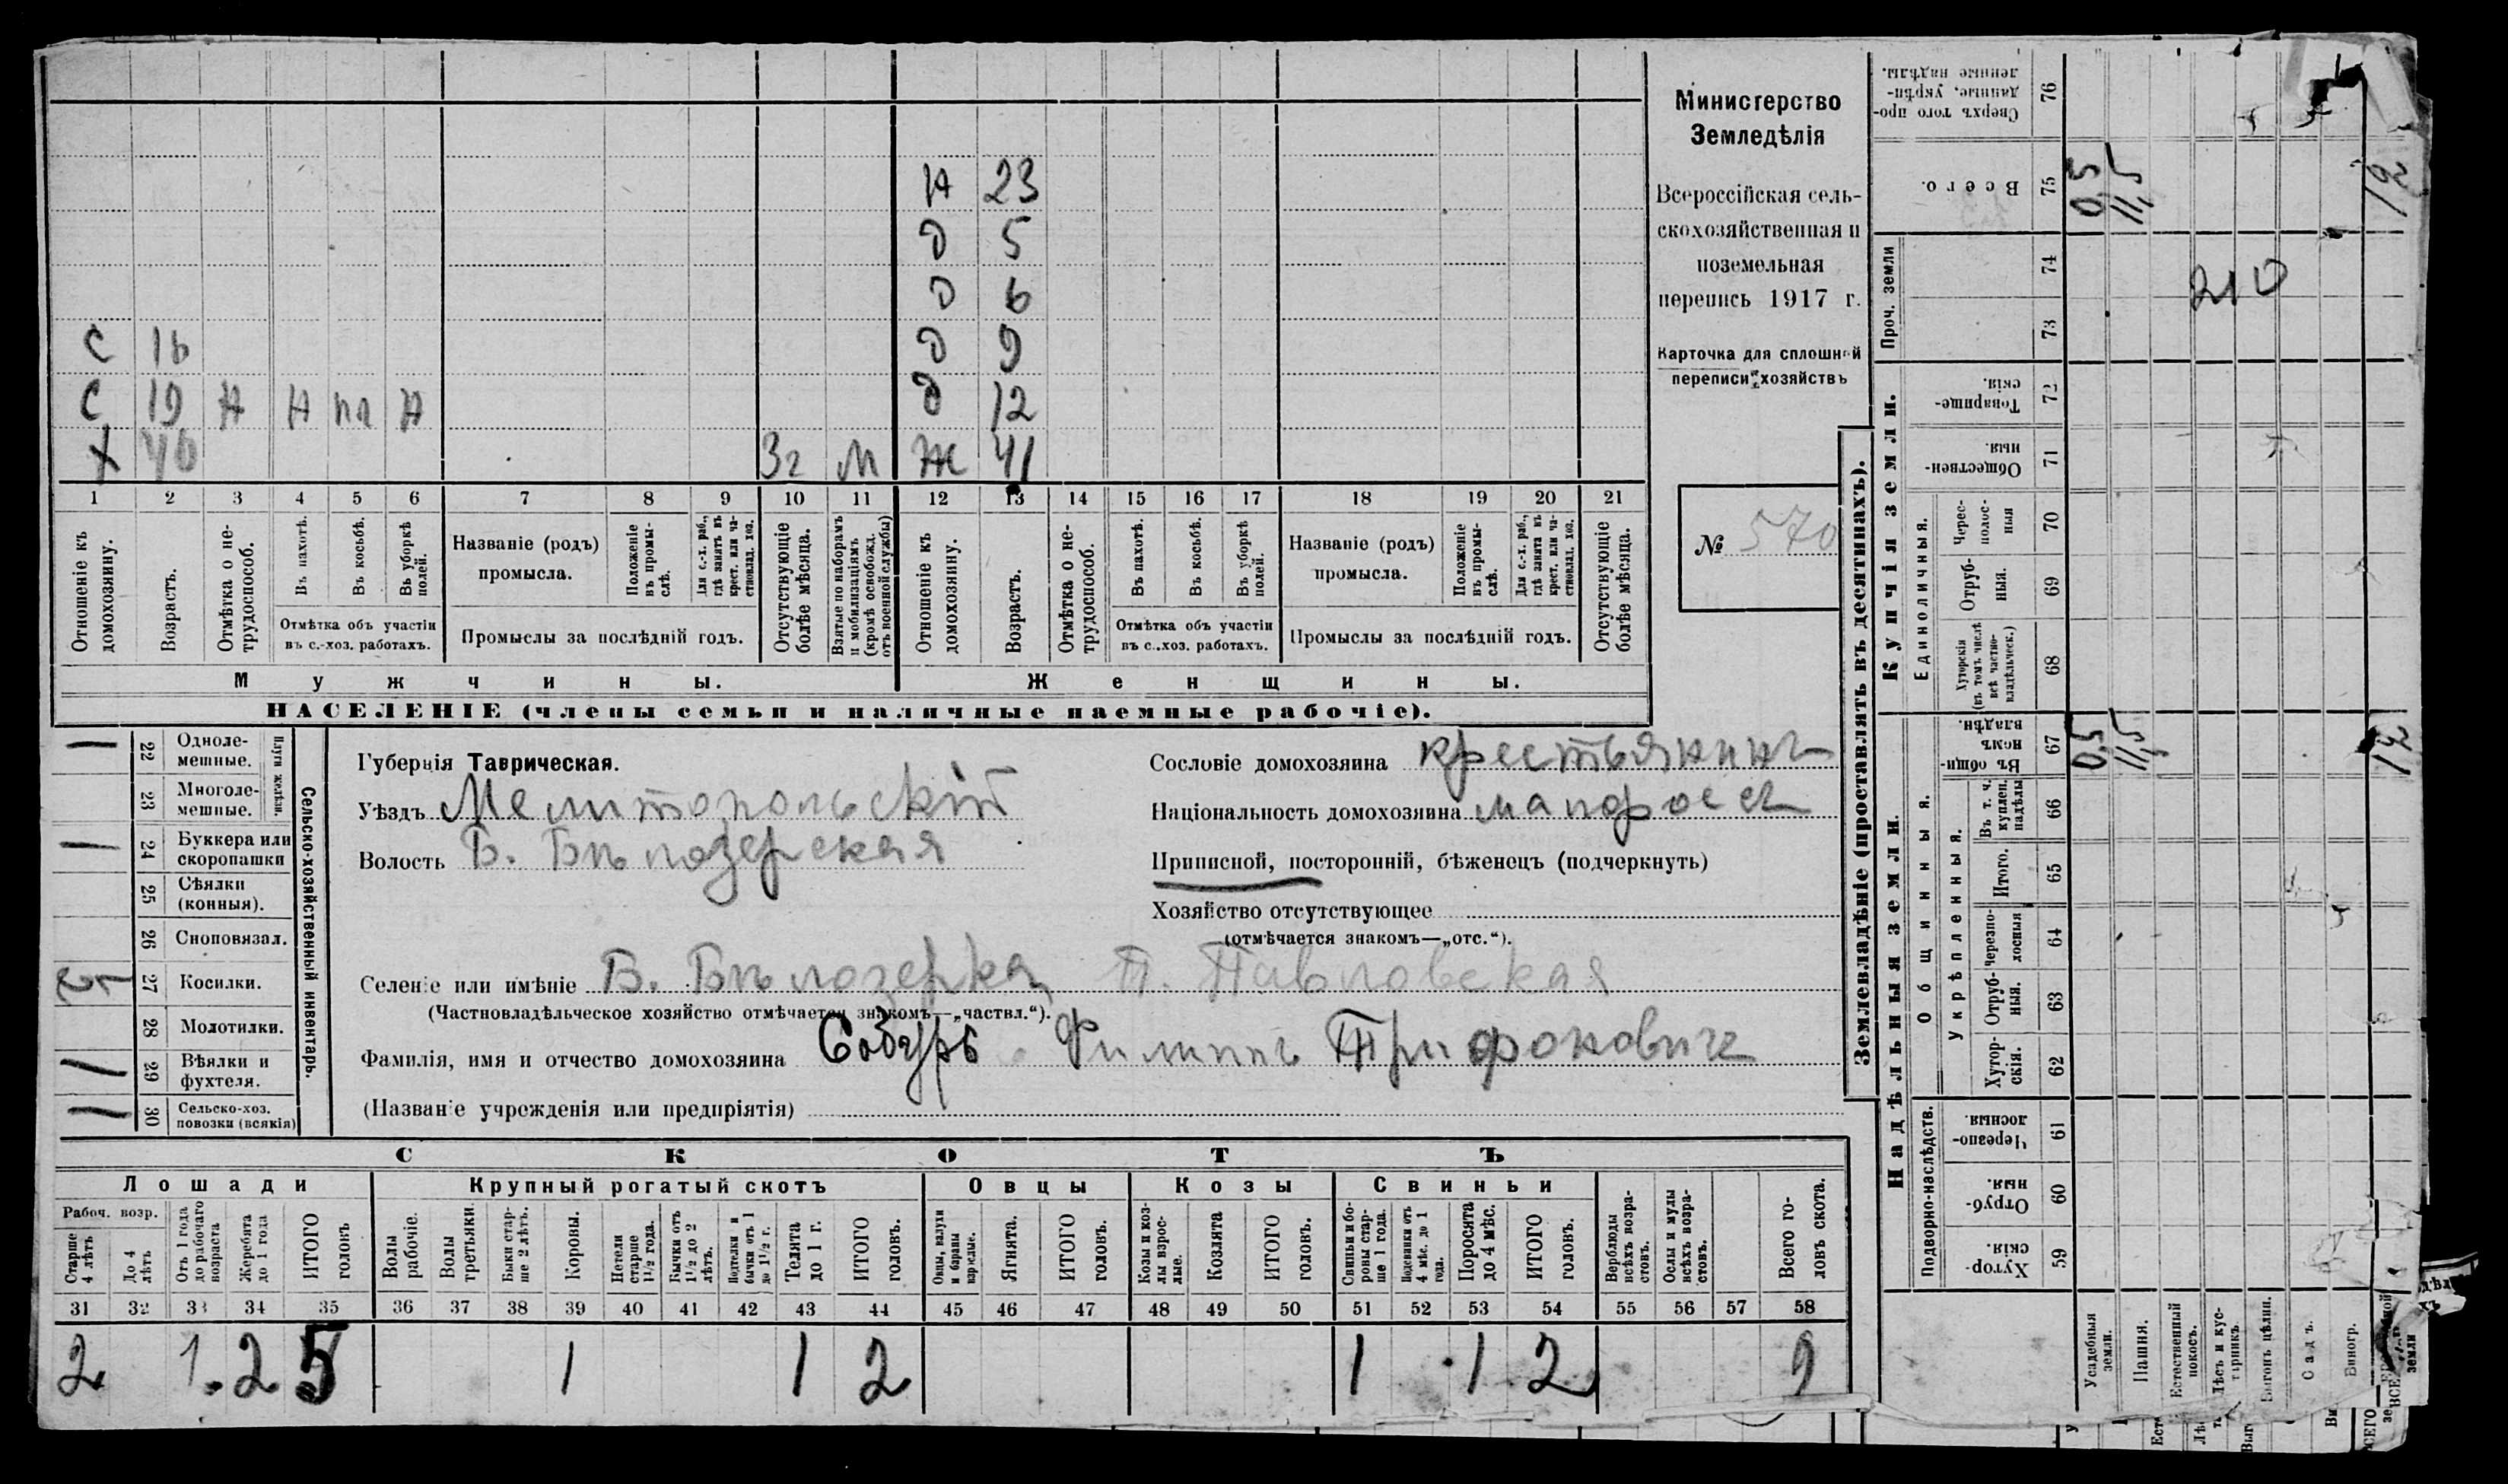 Министерство
Земледѣлія
Всероссійская сель-
скохозяйственная и
поземельная
перепись 1917 г.
Карточка для сплошной
переписи хозяйствъ
№ 570
Н 23
Д 5
Д 6
С 16 Д 9
С 19 Н Н пл Н Д 12
Х 46 3г М Ж 41
1 2 3 4 5 6 7 8 9 10 11 12 13 14 15 16 17 18 19 20 21
Отношеніе къ домохозяину.
Возрастъ.
Отмѣтка о не-трудоспособ.
Въ пахотѣ.
Въ косьбѣ.
Въ уборкѣ полей.
Отмѣтка объ участіи
въ с.-хоз. работахъ.
Названіе (родъ)
промысла.
Положеніе въ промы-слѣ.
Для с.-х. раб., гдѣ занятъ въ крест. или ча-стновлад. хоз.
Промыслы за послѣдній годъ.
Отсутствующіе болѣе мѣсяца.
Взятые по наборамъ и мобилизаціямъ (кромѣ освобожд. отъ военной службы)
Отношеніе къ домохозяину.
Возрастъ.
Отмѣтка о не-трудоспособ.
Въ пахотѣ.
Въ косьбѣ.
Въ уборкѣ полей.
Отмѣтка объ участіи
въ с.-хоз. работахъ.
Названіе (родъ)
промысла.
Положеніе въ промы-слѣ.
Для с.-х. раб., гдѣ занята въ крест. или ча-стновлад. хоз.
Промыслы за послѣдній годъ.
Отсутствующіе болѣе мѣсяца.
Мужчины. Женщины.
НАСЕЛЕНІЕ (члены семьи и наличные наемные рабочіе).
Сельско-хозяйственный инвентарь.
Плуги желѣзн.
22 Одноле-мешные.
23 Многоле-мешные.
24 Буккера или скоропашки
25 Сѣялки (конныя).
26 Сноповязал.
27 Косилки.
28 Молотилки.
29 Вѣялки и фухтеля.
30 Сельско-хоз. повозки (всякія)
Губернія Таврическая.
Уѣздъ Мелитопольскій
Волость Б. Бѣлозерская
Сословіе домохозяина крестьянинъ
Національность домохозяина малоросъ
Приписной, посторонній, бѣженецъ (подчеркнуть)
Хозяйство отсутствующее
(отмѣчается знакомъ—„отс.“).
Селеніе или имѣніе Б. Бѣлозерка, П. Павловская
(Частновладѣльческое хозяйство отмѣчается знакомъ—„частвл.“).
Фамилія, имя и отчество домохозяина Собуръ Филиппъ Трифоновичъ
(Названіе учрежденія или предпріятія)
СКОТЪ
Лошади Крупный рогатый скотъ Овцы Козы Свиньи
Рабоч. возр.
Старше 4 лѣтъ
До 4 лѣтъ
Отъ 1 года до рабочаго возраста
Жеребята до 1 года
ИТОГО головъ
Волы рабочіе.
Волы третьяки.
Быки стар-ше 2 лѣтъ.
Коровы.
Нетели старше 1½ года.
Бычки отъ 1½ до 2 лѣтъ.
Подтелки и бычки отъ 1 до 1½ г.
Телята до 1 г.
ИТОГО головъ.
Овцы, валухи и бараны взрослые.
Ягнята.
ИТОГО головъ.
Козы и коз-лы взрос-лые.
Козлята
ИТОГО головъ.
Свиньи и бо-ровы стар-ше 1 года.
Подсвинки отъ 4 мѣс. до 1 года.
Поросята до 4 мѣс.
ИТОГО головъ.
Верблюды всѣхъ возра-стовъ.
Ослы и мулы всѣхъ возра-стовъ.
Всего го-ловъ скота.
31 32 33 34 35 36 37 38 39 40 41 42 43 44 45 46 47 48 49 50 51 52 53 54 55 56 57 58
2 1 2 5 1 1 2 1 1 2 9
Землевладѣніе (проставлять въ десятинахъ).
Надѣльныя земли.
Купчія земли.
Подворно-наслѣдств.
Общинныя.
Укрѣпленныя.
Единоличныя.
Проч. земли
Хутор-скія. 59
Отруб-ныя. 60
Черезпо-лосныя 61
Хутор-скія. 62
Отруб-ныя. 63
Черезпо-лосныя 64
Итого. 65
Въ т. ч. куплен. надѣлы 66
Въ общин-номъ владѣн. 67
Хуторскія (въ томъ числѣ всѣ частно-владѣльческ.) 68
Отруб-ныя. 69
Черес-полос-ныя 70
Обществен-ныя 71
Товарище-скія. 72
73
74
Всего. 75
Сверхъ того про-данные, укрѣп-ленные надѣлы. 76
Усадебныя земли. 0,5 0,5
Пашня. 11,5 11,5
Естественный покосъ.
Лѣсъ и кус-тарникъ.
Выгонъ цѣлин.
Садъ.
Виногр.
12 12
210